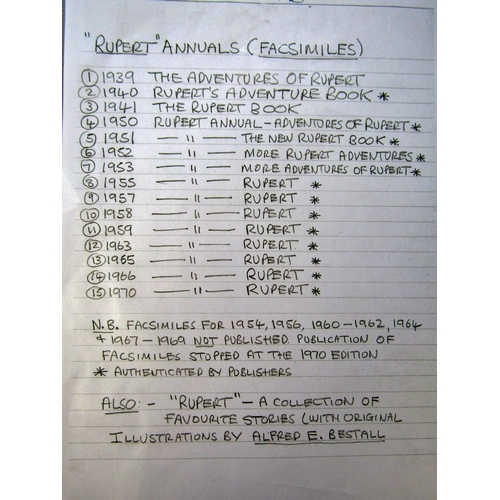 "RUPERT" ANNUALS (FACSIMILES)
① 1939 THE ADVENTURES OF RUPERT
② 1940 RUPERT'S ADVENTURE BOOK *
③ 1941 THE RUPERT BOOK
④ 1950 RUPERT ANNUAL - ADVENTURES OF RUPERT *
⑤ 1951 — " — THE NEW RUPERT BOOK *
⑥ 1952 — " — MORE RUPERT ADVENTURES *
⑦ 1953 — " — MORE ADVENTURES OF RUPERT *
⑧ 1955 — " — RUPERT *
⑨ 1957 — " — RUPERT *
⑩ 1958 — " — RUPERT *
⑪ 1959 — " — RUPERT *
⑫ 1963 — " — RUPERT *
⑬ 1965 — " — RUPERT *
⑭ 1966 — " — RUPERT *
⑮ 1970 — " — RUPERT *
N.B. FACSIMILES FOR 1954, 1956, 1960-1962, 1964
+ 1967-1969 NOT PUBLISHED. PUBLICATION OF
FACSIMILES STOPPED AT THE 1970 EDITION
* AUTHENTICATED BY PUBLISHERS
ALSO:- "RUPERT" - A COLLECTION OF
FAVOURITE STORIES (WITH ORIGINAL
ILLUSTRATIONS BY ALFRED E. BESTALL